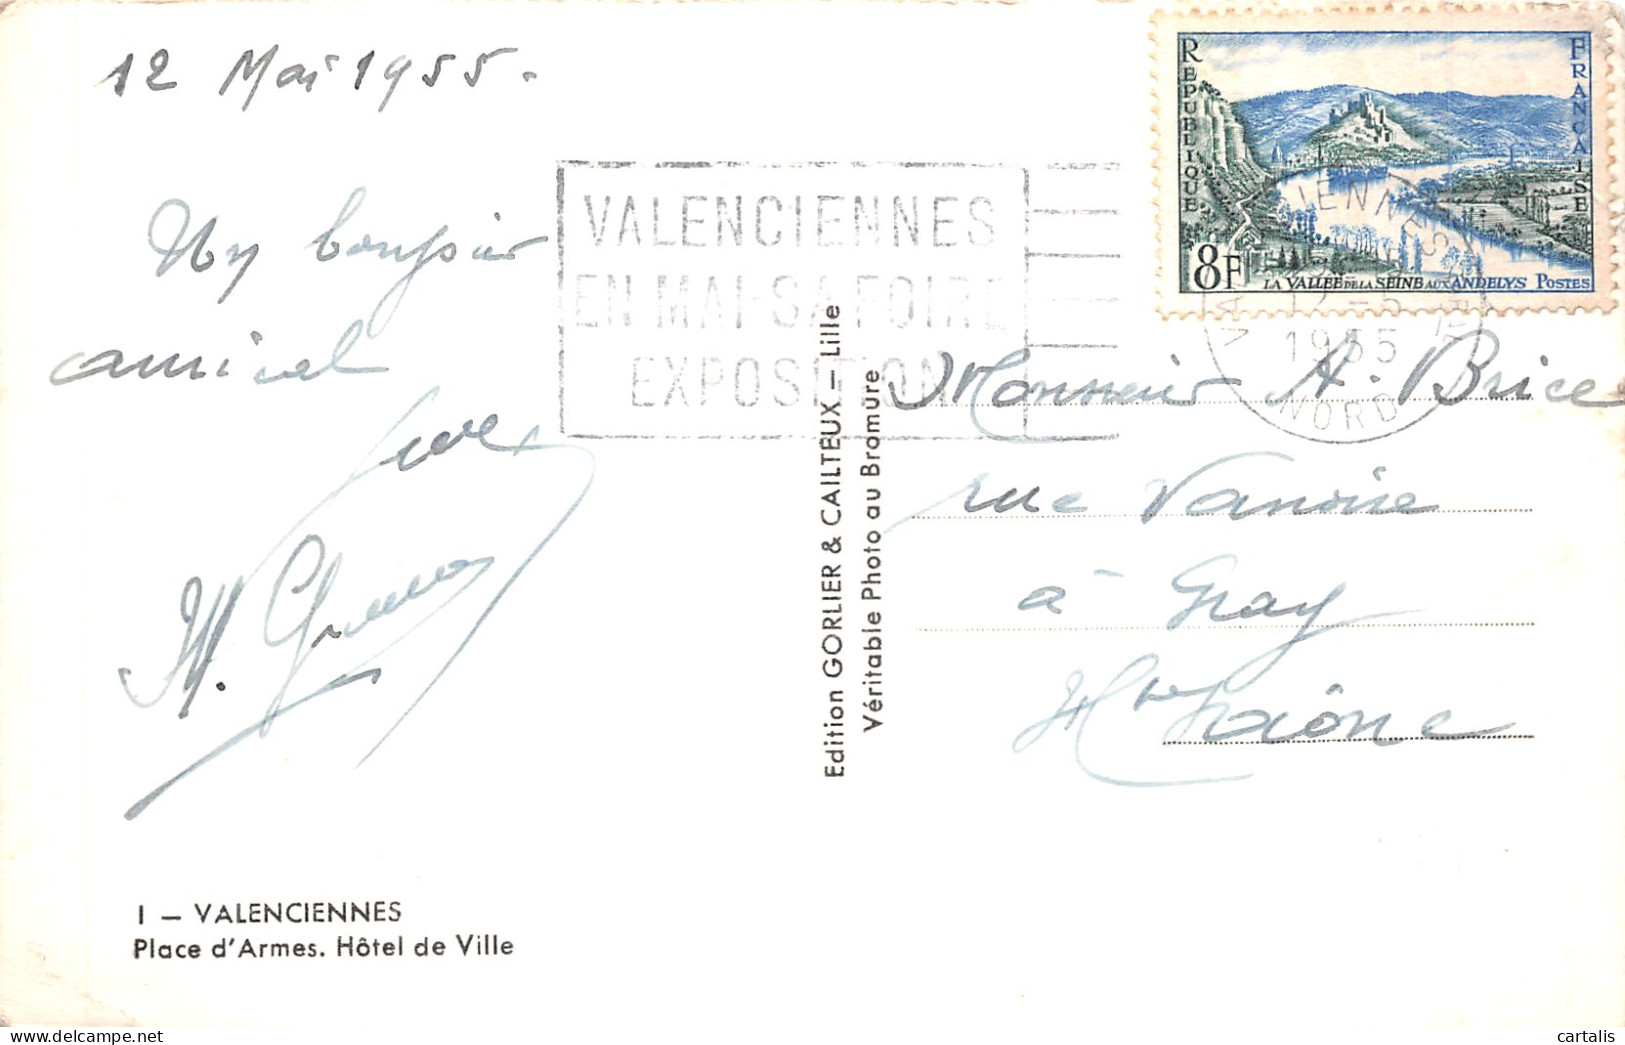 12 Mai 1955.
bonjour
amical
M.
I — VALENCIENNES
Place d'Armes. Hôtel de Ville
VALENCIENNES
EN MAI-SA FOIRE
EXPOSITION
Edition GORLIER & CAILTEUX — Lille
Véritable Photo au Bromure
RÉPUBLIQUE
FRANÇAISE
8F
LA VALLÉE DE LA SEINE AUX ANDELYS POSTES
VALENCIENNES
12-5
1955
NORD
Monsieur A. Brice
rue Vanoise
à Gray
Hte Saône
cartalis